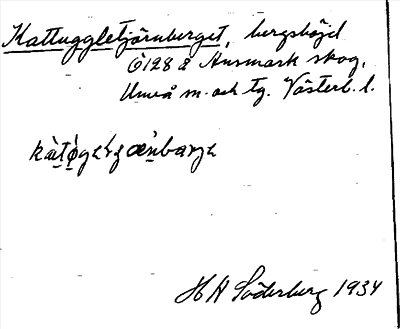 Kattuggletjärnberget, bergshöjd
Ö128 å Ansmark skog,
Umeå sn. och tg. Västerb. l.
H A Söderberg 1934